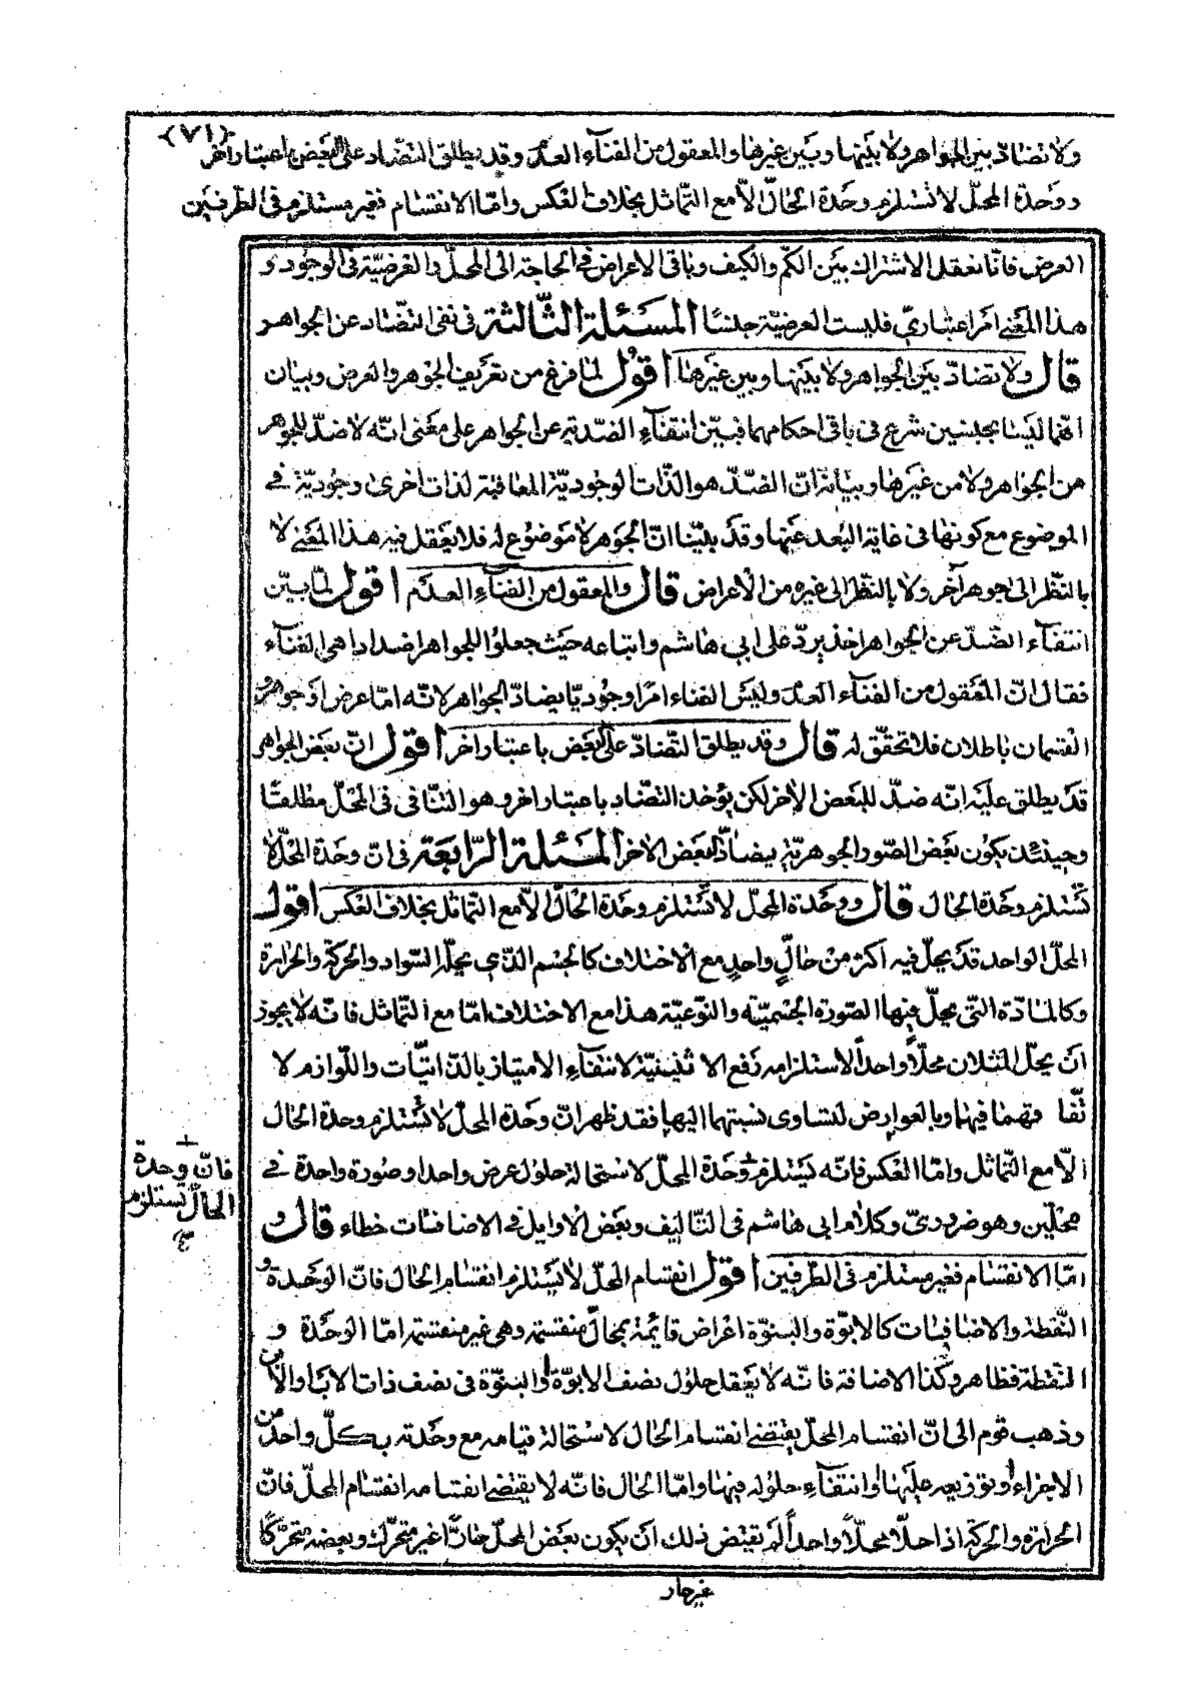 (٧١)
ولا تضادّ بين الجواهر ولا بينها وبين غيرها والمعقول من الفنآء العدم وقد يطلق التضاد على البعض باعتبار آخر
ووحدة المحلّ لا تستلزم وحدة الحالّ الاّ مع التماثل بخلاف العكس وامّا الانقسام فغير مستلزم فى الطرفين
العرض فانّا نعقل الاشتراك بين الكمّ والكيف وباقى الاعراض فى الحاجة الى المحلّ والعرضيّة فى الوجود و
هذا المعنى امر اعتبارىّ فليست العرضيّة جنسًا المسئلة الثّالثة فى نفى التضّاد عن الجواهر
قال ولا تضادّ بين الجواهر ولا بينها وبين غيرها اقول لمّا فرغ من تعريف الجوهر والعرض وبيان
انّهما ليسا بجنسين شرع فى باقى احكامهما فبيّن انتفآء الضّدّية عن الجواهر على معنى انّه لا ضدّ للجوهر
من الجواهر ولا من غيرها وبيانه انّ الضدّ هو الذّات الوجوديّة المعاقبة لذات اخرى وجوديّة فى
الموضوع مع كونها فى غاية البعد عنها وقد بيّنا انّ الجوهر لا موضوع له فلا يعقل فيه هذا المعنى لا
بالنّظر الى جوهر آخر ولا بالنّظر الى غيره من الأعراض قال والمعقول من الفنآء العدم اقول لمّا بيّن
انتفآء الضّدّ عن الجواهر اخذ يردّ على ابى هاشم واتباعه حيث جعلوا للجواهر اضدادا هى الفنآء
فقال انّ المعقول من الفنآء العدم وليس الفناء امرًا وجوديّا يضادّ الجواهر لانّه امّا عرض او جوهر و
القسمان باطلان فلا تحقّق له قال وقد يطلق التّضادّ على البعض باعتبار آخر اقول انّ بعض الجواهر
قد يطلق عليه انّه ضدّ للبعض الاخر لكن يؤخذ التضّاد باعتبار اخر وهو التنّافى فى المحلّ مطلقًا
وحينئذ يكون بعض الصّور الجوهريّة يضادّ البعض الاخر المسئلة الرّابعة فى انّ وحدة المحلّ لا
تستلزم وحدة الحال قال ووحدة المحلّ لا تستلزم وحدة الحالّ الاّ مع التّماثل بخلاف العكس اقول
المحلّ الواحد قد يحلّ فيه اكثر من حالٍّ واحدٍ مع الاختلاف كالجسم الذّى يحلّه السّواد والحركة والحرارة
وكالمادّة التّى يحلّ فيها الصّورة الجسميّة والنّوعيّة هذا مع الاختلاف امّا مع التّماثل فانّه لا يجوز
ان يحلّ المثلان محلاًّ واحداً لاستلزامه رفع الاثنينيّة لانتفآء الامتياز بالذّاتيّات واللّوازم لا
تّفاقهما فيها وبالعوارض لتساوى نسبتهما اليها فقد ظهر انّ وحدة المحلّ لا تستلزم وحدة الحال
الاّ مع التّماثل وامّا العكس فانّه يستلزم وحدة المحلّ لاستحالة حلول عرض واحد او صورة واحدة فى
فانّ وحدة
الحالّ تستلزم
محلّين وهو ضرورىّ وكلام ابى هاشم فى التّاليف وبعض الاوايل فى الاضافات خطاء قال و
امّا الانقسام فغير مستلزم فى الطّرفين اقول انقسام المحلّ لا يستلزم انقسام الحال فانّ الوحدة و
النّقطة والاضافيات كالابوّة والبنوّة اعراض قائمة بمحالّ منقسمة وهى غير منقسمة امّا الوحدة و
النقطة فظاهر وكذا الاضافة فانّه لا يعقل حلول نصف الابوّة او البنوّة فى نصف ذات الاب او الابن
وذهب قوم الى انّ انقسام المحلّ يقتضى انقسام الحال لاستحالة قيامه مع وحدته بكلّ واحد من
الاجزاء او توزيعه عليها او انتفآء حلوله فيها وامّا الحال فانّه لا يقتضى انقسامه انقسام المحلّ فانّ
الحرارة والحركة اذا حلاّ محلاًّ واحداً لم يقتض ذلك ان يكون بعض المحلّ حارًّا غير متحرّك وبعضه متحرّكًا
غير حار